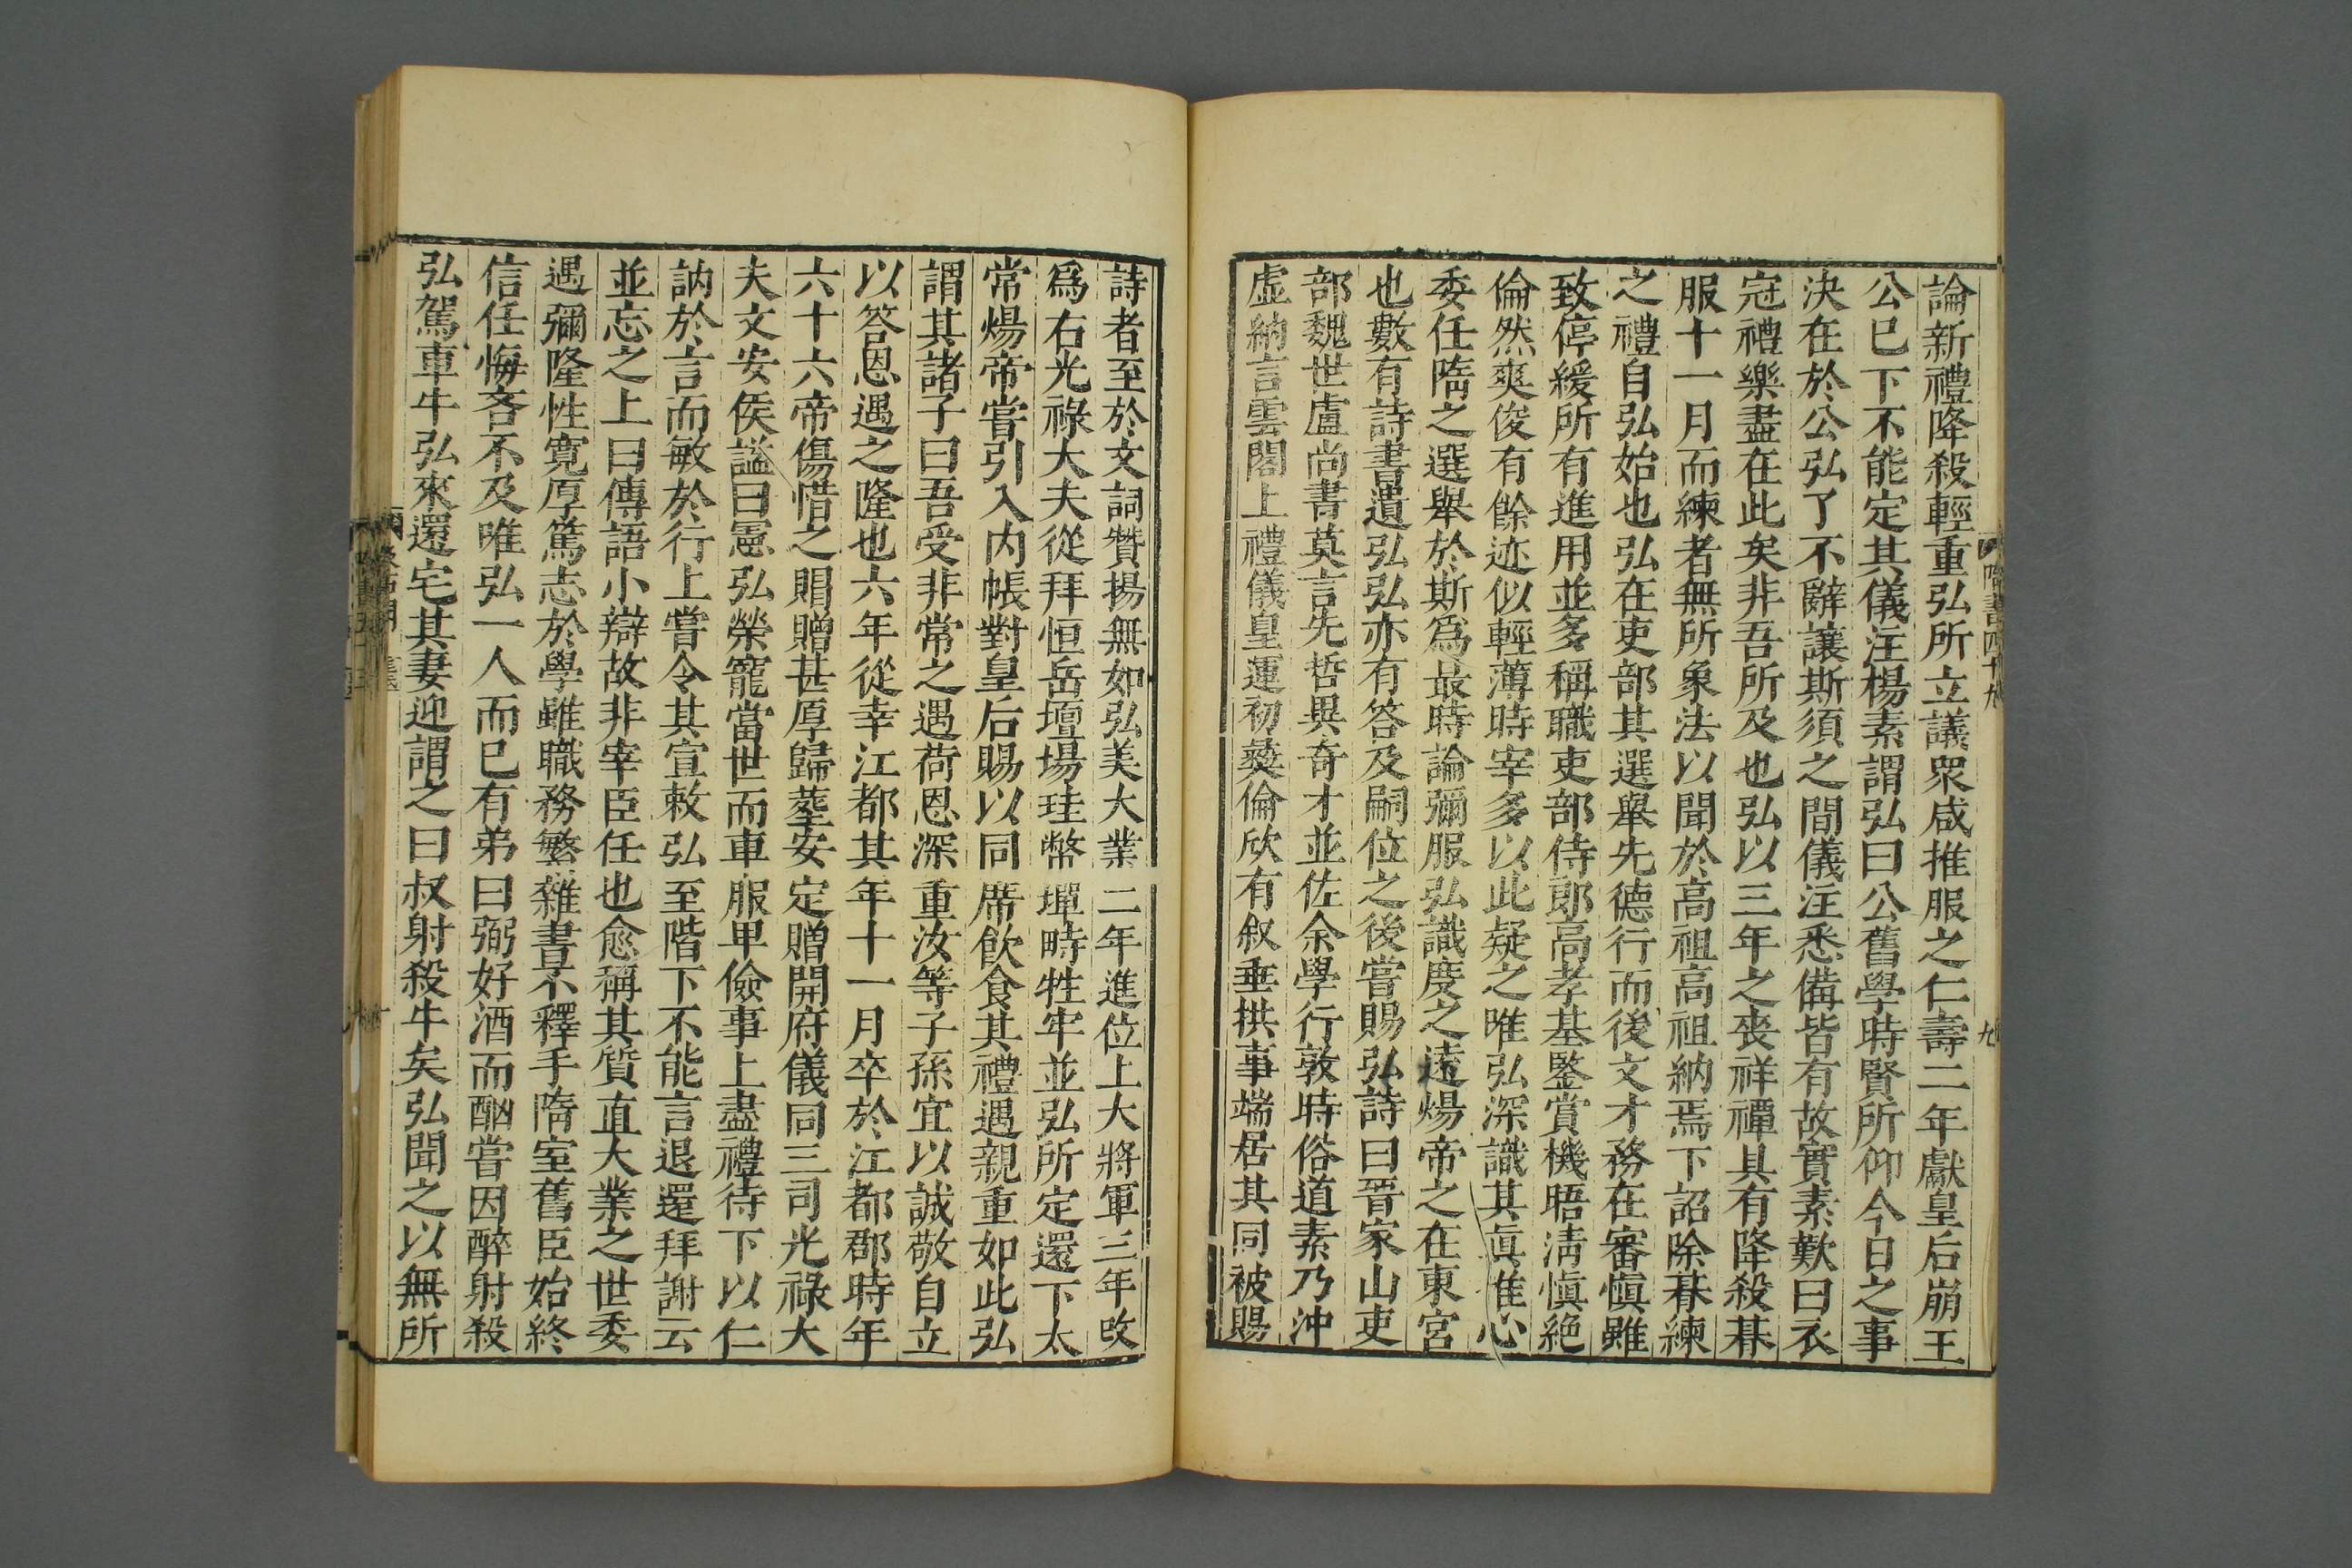 論新禮降殺輕重弘所立議衆咸推服之仁壽二年獻皇后崩王
公已下不能定其儀注楊素謂弘曰公舊學時賢所仰今日之事
決在於公弘了不辭讓斯須之間儀注悉備皆有故實素歎曰衣
冠禮樂盡在此矣非吾所及也弘以三年之喪祥禫具有降殺朞
服十一月而練者無所象法以聞於高祖高祖納焉下詔除朞練
之禮自弘始也弘在吏部其選舉先德行而後文才務在審愼雖
致停緩所有進用並多稱職吏部侍郎高孝基鑒賞機晤淸愼絕
倫然爽俊有餘迹似輕薄時宰多以此疑之唯弘深識其眞推心
委任隋之選舉於斯爲最時論彌服弘識度之遠煬帝之在東宮
也數有詩書遺弘弘亦有答及嗣位之後嘗賜弘詩曰晉家山吏
部魏世盧尚書莫言先哲異奇才並佐余學行敦時俗道素乃沖
虛納言雲閣上禮儀皇運初彝倫欣有敘垂拱事端居其同被賜
隋書四十九
九
詩者至於文詞贊揚無如弘美大業二年進位上大將軍三年改
爲右光祿大夫從拜恒岳壇場珪幣墠畤牲牢並弘所定還下太
常煬帝嘗引入內帳對皇后賜以同席飮食其禮遇親重如此弘
謂其諸子曰吾受非常之遇荷恩深重汝等子孫宜以誠敬自立
以答恩遇之隆也六年從幸江都其年十一月卒於江都郡時年
六十六帝傷惜之賵贈甚厚歸葬安定贈開府儀同三司光祿大
夫文安侯謚曰憲弘榮寵當世而車服卑儉事上盡禮待下以仁
訥於言而敏於行上嘗令其宣敕弘至階下不能言退還拜謝云
並忘之上曰傳語小辯故非宰臣任也愈稱其質直大業之世委
遇彌隆性寬厚篤志於學雖職務繁雜書不釋手隋室舊臣始終
信任悔吝不及唯弘一人而已有弟曰弼好酒而酗嘗因醉射殺
弘駕車牛弘來還宅其妻迎謂之曰叔射殺牛矣弘聞之以無所